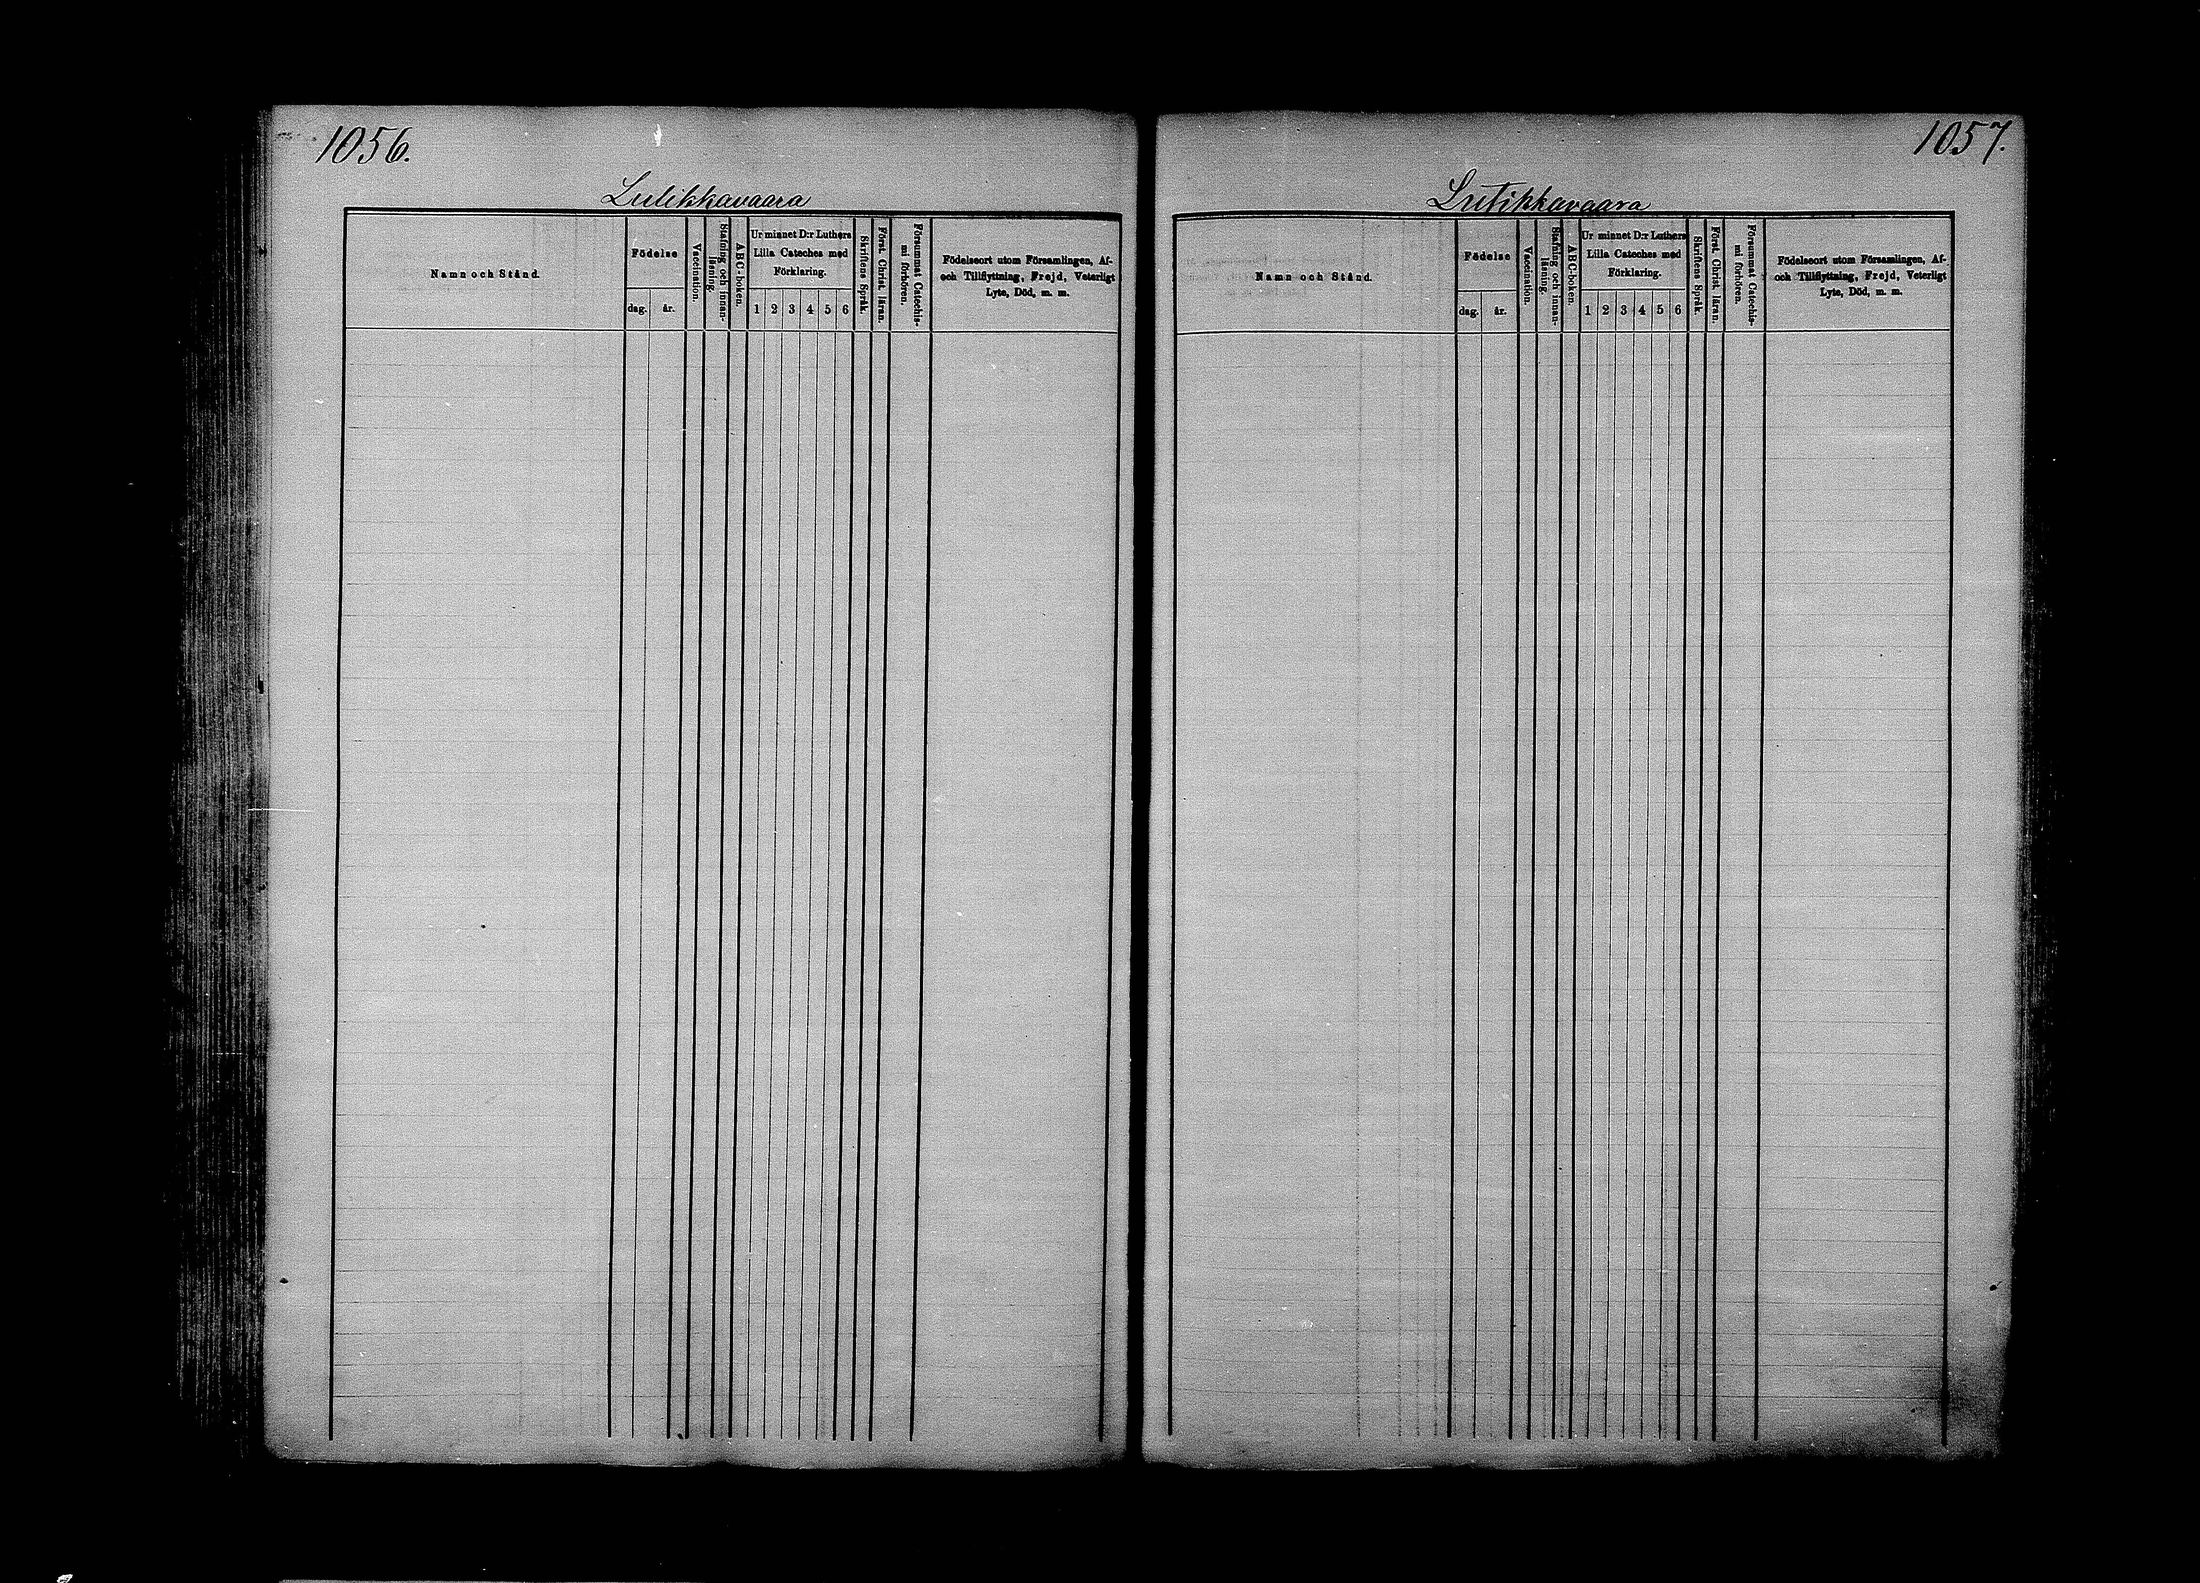 1056.
Lutikkavaara
Namn och Stånd.
Födelse
dag.
år.
Vaccination.
Stafning och innan-
läsning.
ABC-boken.
Ur minnet D:r Luthers
Lilla Cateches med
Förklaring.
1 2 3 4 5 6
Skriftens Språk.
Först. Christ. läran.
Försummat Catechis-
mi förhören.
Födelseort utom Församlingen, Af-
och Tillflyttning, Frejd, Veterligt
Lyte, Död, m. m.
1057.
Lutikkavaara
Namn och Stånd.
Födelse
dag.
år.
Vaccination.
Stafning och innan-
läsning.
ABC-boken.
Ur minnet D:r Luthers
Lilla Cateches med
Förklaring.
1 2 3 4 5 6
Skriftens Språk.
Först. Christ. läran.
Försummat Catechis-
mi förhören.
Födelseort utom Församlingen, Af-
och Tillflyttning, Frejd, Veterligt
Lyte, Död, m. m.